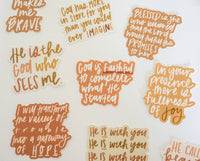 makes me
BRAVE
GOD HAS MORE
in store for you
than you could
ever IMAGINE
BLESSED is she
who
HIS
PROMISE
to her
He is the
God who
SEES me
God is faithful
to complete
what He
started
In your
presence
there is
fullness
of joy
I will transform
the valley of
trouble
into a gateway
of HOPE
He is with you
He is with you
He is with you
HE CALL